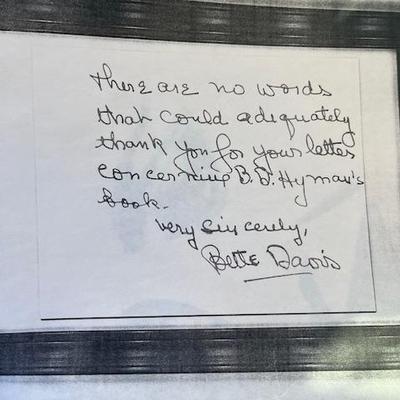 there are no words
that could adequately
thank you for your letter
concerning B.D. Hyman's
book.
very sincerely,
Bette Davis